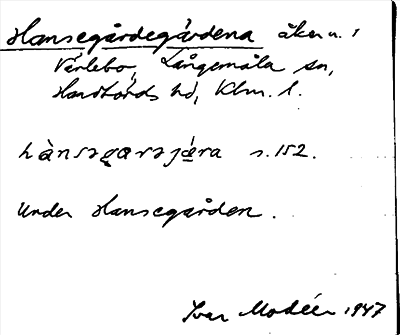 Hansegårdegärdena åker n. 1
Värlebo, Långemåla sn,
Handbörds hd, Klm. l.
hànsəgarəjæ̀ra s. 152.
Under Hansegården.
Ivar Modéer 1947